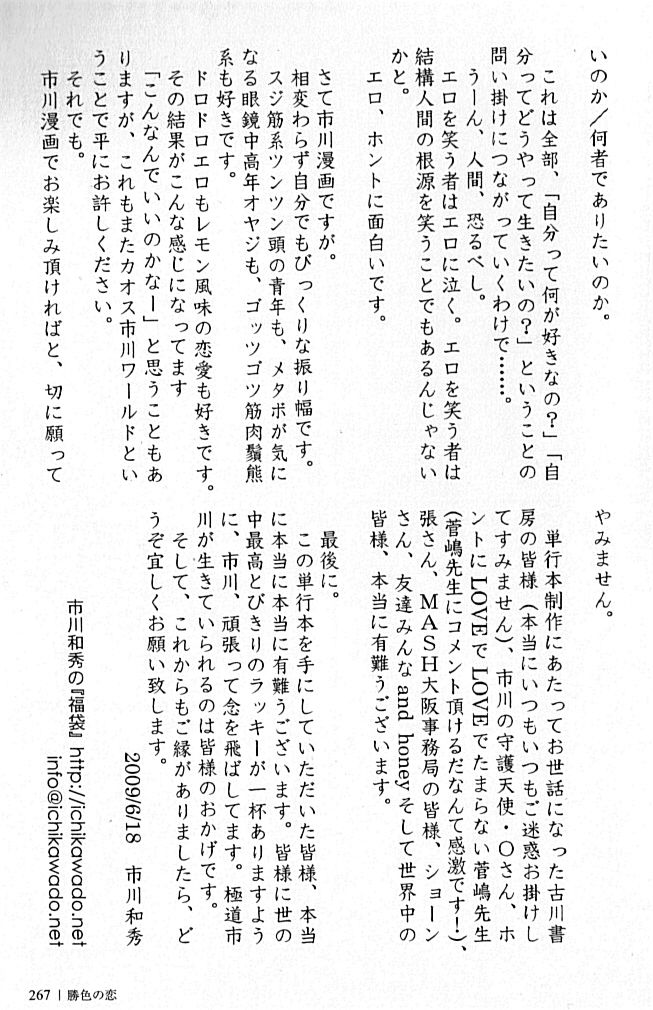 いのか／何者でありたいのか。
これは全部、「自分って何が好きなの？」「自
分ってどうやって生きたいの？」ということの
問い掛けにつながっていくわけで……。
うーん、人間、恐るべし。
エロを笑う者はエロに泣く。エロを笑う者は
結構人間の根源を笑うことでもあるんじゃない
かと。
エロ、ホントに面白いです。
さて市川漫画ですが。
相変わらず自分でもびっくりな振り幅です。
スジ筋系ツンツン頭の青年も、メタボが気に
なる眼鏡中高年オヤジも、ゴッツゴツ筋肉鬚熊
系も好きです。
ドロドロエロもレモン風味の恋愛も好きです。
その結果がこんな感じになってます
「こんなんでいいのかなー」と思うこともあ
りますが、これもまたカオス市川ワールドとい
うことで平にお許しください。
それでも。
市川漫画でお楽しみ頂ければと、切に願って
やみません。
単行本制作にあたってお世話になった古川書
房の皆様（本当にいつもいつもご迷惑お掛けし
てすみません）、市川の守護天使・Ｏさん、ホ
ントにLOVEでLOVEでたまらない菅嶋先生
（菅嶋先生にコメント頂けるだなんて感激です！）、
張さん、ＭＡＳＨ大阪事務局の皆様、ショーン
さん、友達みんな and honey そして世界中の
皆様、本当に有難うございます。
最後に。
この単行本を手にしていただいた皆様、本当
に本当に本当に有難うございます。皆様に世の
中最高とびきりのラッキーが一杯ありますよう
に、市川、頑張って念を飛ばしてます。極道市
川が生きていられるのは皆様のおかげです。
そして、これからもご縁がありましたら、ど
うぞ宜しくお願い致します。
2009/6/18　市川和秀
市川和秀の『福袋』http://ichikawado.net
info@ichikawado.net
267 | 勝色の恋